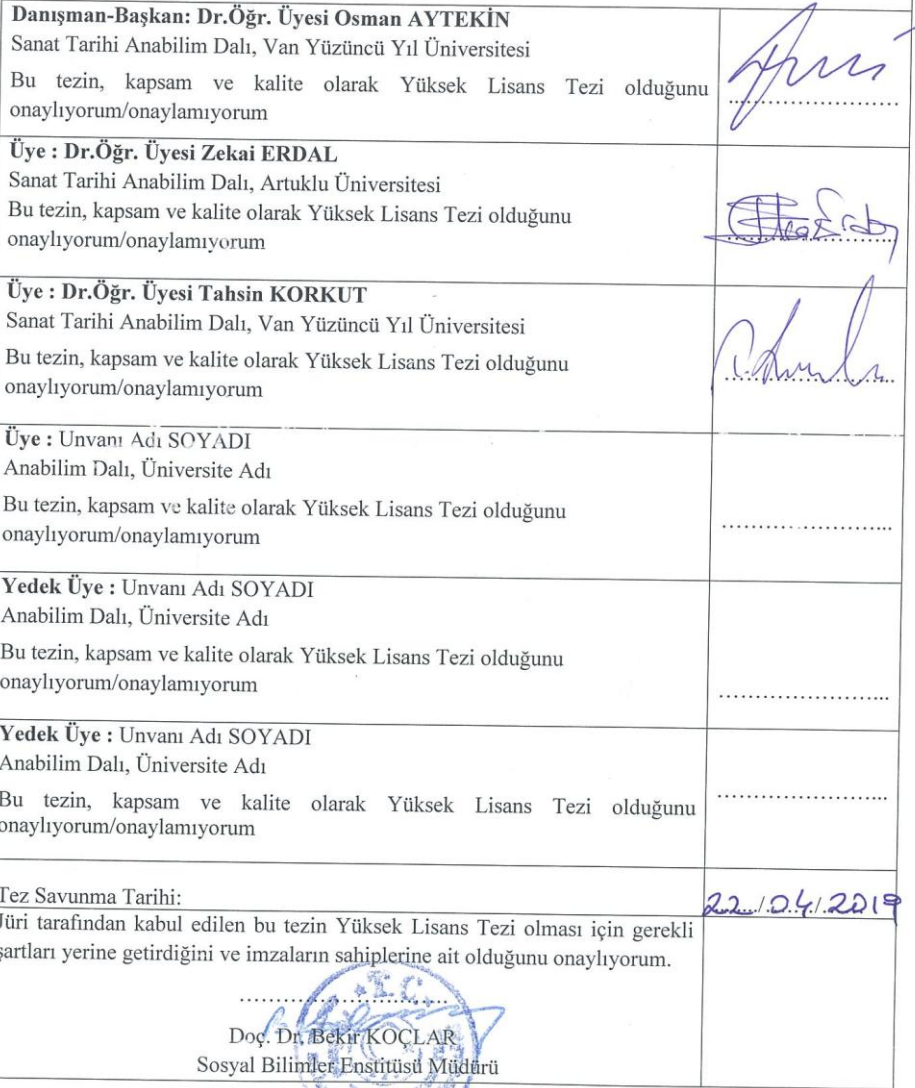 Danışman-Başkan: Dr.Öğr. Üyesi Osman AYTEKİN
Sanat Tarihi Anabilim Dalı, Van Yüzüncü Yıl Üniversitesi
Bu tezin, kapsam ve kalite olarak Yüksek Lisans Tezi olduğunu
onaylıyorum/onaylamıyorum
....................
Üye : Dr.Öğr. Üyesi Zekai ERDAL
Sanat Tarihi Anabilim Dalı, Artuklu Üniversitesi
Bu tezin, kapsam ve kalite olarak Yüksek Lisans Tezi olduğunu
onaylıyorum/onaylamıyorum
Üye : Dr.Öğr. Üyesi Tahsin KORKUT
Sanat Tarihi Anabilim Dalı, Van Yüzüncü Yıl Üniversitesi
Bu tezin, kapsam ve kalite olarak Yüksek Lisans Tezi olduğunu
onaylıyorum/onaylamıyorum
Üye : Unvanı Adı SOYADI
Anabilim Dalı, Üniversite Adı
Bu tezin, kapsam ve kalite olarak Yüksek Lisans Tezi olduğunu
onaylıyorum/onaylamıyorum
....................
Yedek Üye : Unvanı Adı SOYADI
Anabilim Dalı, Üniversite Adı
Bu tezin, kapsam ve kalite olarak Yüksek Lisans Tezi olduğunu
onaylıyorum/onaylamıyorum
....................
Yedek Üye : Unvanı Adı SOYADI
Anabilim Dalı, Üniversite Adı
Bu tezin, kapsam ve kalite olarak Yüksek Lisans Tezi olduğunu
onaylıyorum/onaylamıyorum
....................
Tez Savunma Tarihi: 22../.04./.2019
Jüri tarafından kabul edilen bu tezin Yüksek Lisans Tezi olması için gerekli
şartları yerine getirdiğini ve imzaların sahiplerine ait olduğunu onaylıyorum.
T.C.
Doç. Dr. Bekir KOÇLAR
Sosyal Bilimler Enstitüsü Müdürü